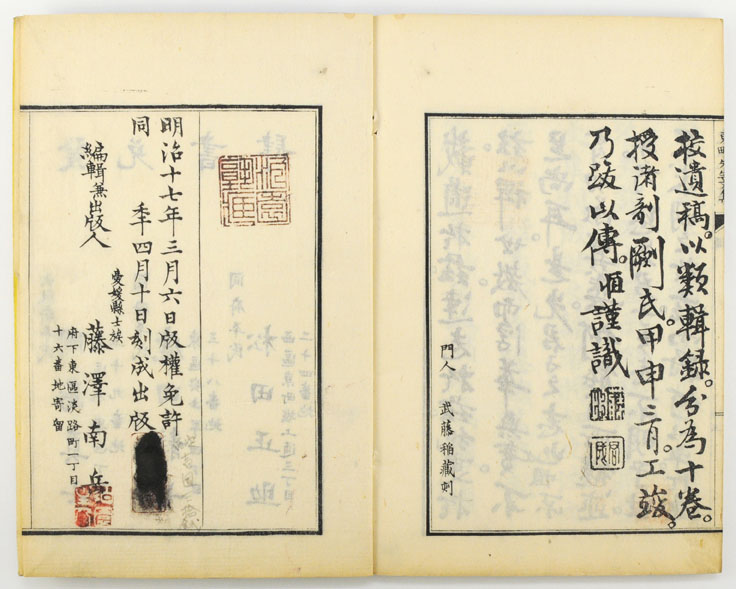 校遺稿。以類輯録。分為十卷。
授諸剞劂氏。甲申三月。工竣。
乃跋以傳。恒謹識
門人 武藤稲藏刻
明治十七年三月六日版權免許
同 季四月十日刻成出版
編輯兼出版人
愛媛縣士族
藤澤南岳
府下東區淡路町一丁目
十六番地寄留